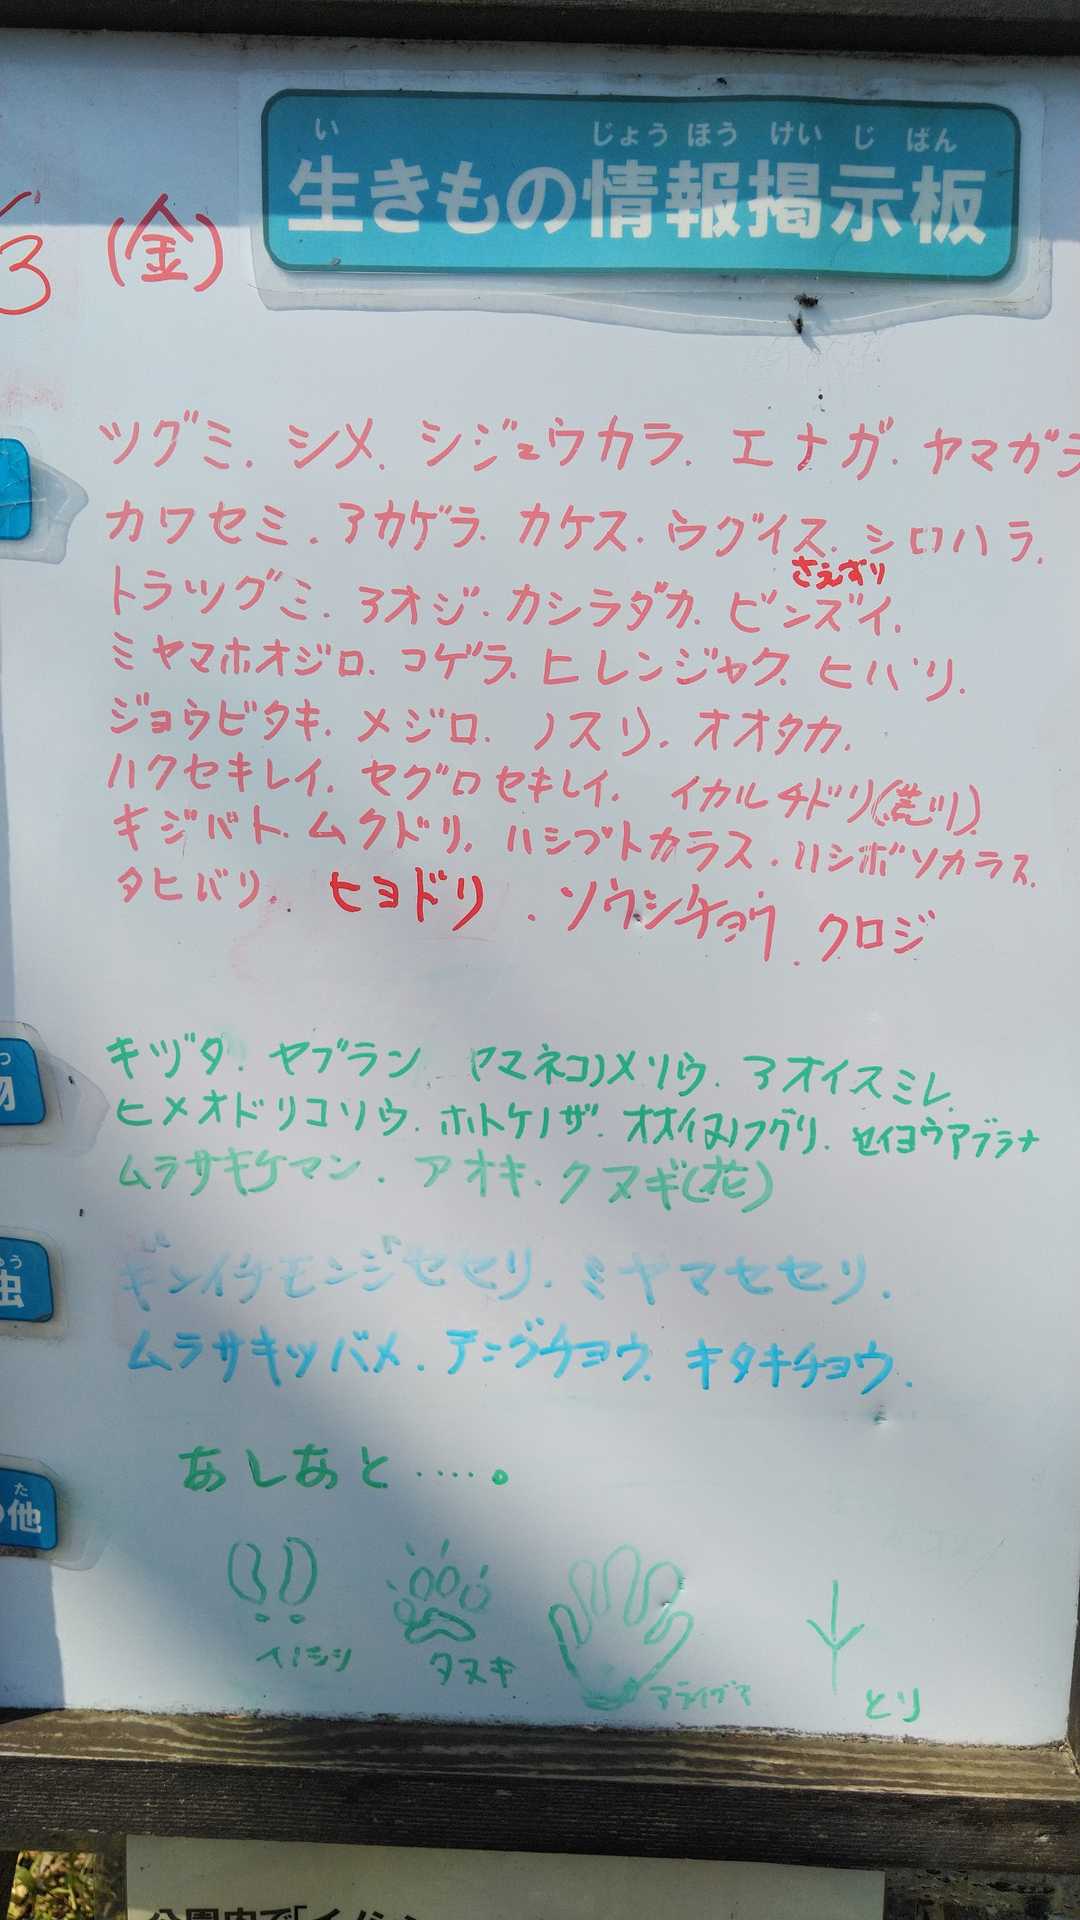 い じょう ほう けい じ ばん
生きもの情報掲示板
3 (金)
ツグミ. シメ. シジュウカラ. エナガ. ヤマガラ
カワセミ. アカゲラ. カケス. ウグイス. シロハラ.
さえずり
トラツグミ. アオジ. カシラダカ. ビンズイ.
ミヤマホオジロ. コゲラ. ヒレンジャク. ヒバリ.
ジョウビタキ. メジロ. ノスリ. オオタカ.
ハクセキレイ. セグロセキレイ. イカルチドリ(荒川).
キジバト. ムクドリ. ハシブトカラス. ハシボソカラス.
タヒバリ. ヒヨドリ. ソウシチョウ. クロジ
つ
物
キヅタ. ヤブラン ヤマネコノメソウ. アオイスミレ.
ヒメオドリコソウ. ホトケノザ. オオイヌノフグリ. セイヨウアブラナ
ムラサキケマン. アオキ. クヌギ(花)
ゅう
虫
ギンイチモンジセセリ. ミヤマセセリ.
ムラサキツバメ. テングチョウ. キタキチョウ.
あしあと.....。
た
の他
イノシシ タヌキ アライグマ とり
公園内で「イノシシ